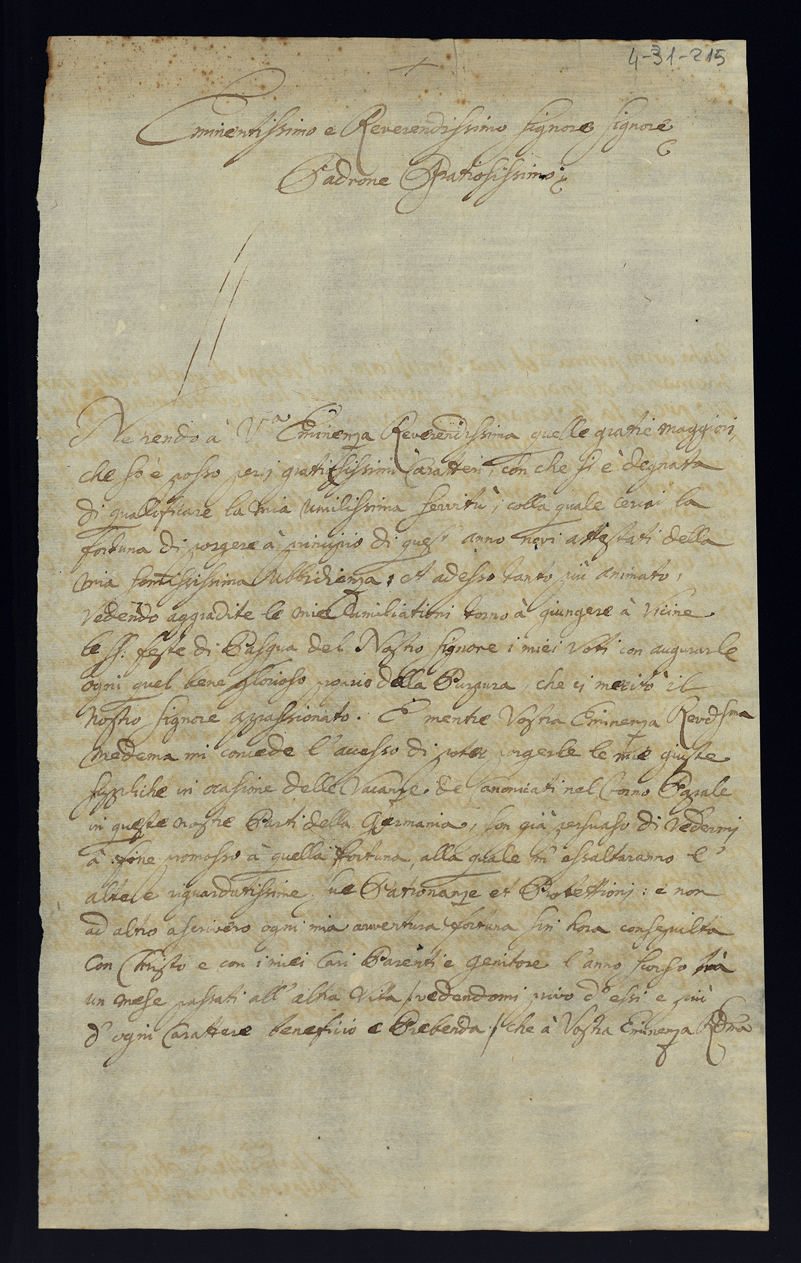 4-31-215
Eminentissimo e Reverendissimo Signore Signore
Padrone Gratiosissimo
Ne rendo à V.ra Eminenza Reverendissima quelle gratie maggiori,
che so è posso per i gratissimi Caratteri, con che si è degnata
di qualificare la mia umilissima servitù, colla quale cercai la
fortuna di porgere à principio di quest' anno novi attestati della
mia Ubbidienza; et adesso tanto più animato,
vedendo aggradite le mie humiliationi torno à giungere à vicine
le SS. feste di Pasqua del Nostro Signore i miei Voti con augurarle
ogni quel bene glorioso proprio della Purpura, che ci meritò il
Nostro Signore appassionato. E mentre Vostra Eminenza Revd.sma
medema mi concede l'accesso di poter porgerle le mie giuste
suppliche in ocasione delle Vacanze de Canonicati nel Corno Papale
in queste nostre Parti della Germania, son già persuaso di vedermi
à fine promosso à quella fortuna, alla quale m' essaltaranno l'
alte e riguardatissime sue Patronanze et Protettioni: e non
ad altro ascriverò ogni mia avventura fortuna sin hora conseguita
con Christo e con i miei Cari Parenti e Genitore l'anno scorso
un mese passati all' altra Vita / vedendomi privo d' essi e più
d' ogni Carattere beneficio e Prebenda / che à Vostra Eminenza Rdma